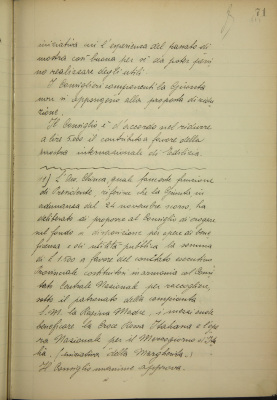 71
iniziativa cui l'esperienza del passato di-
mostra così buona per cui da poter perfi-
no realizzare degli utili.
I Consiglieri componenti la Giunta
non si oppongono alla proposta di ridu-
zione.
Il Consiglio è d'accordo nel ridurre
a lire 5000 il contributo a favore della
mostra internazionale di edilizia.
14) L'On. quale facente funzione
di Presidente, riferisce che la Giunta in
adunanza del 24 novembre scorso, ha
deliberato di proporre al Consiglio di erogare
nel fondo a disposizione per opere di bene-
ficenza e di utilità pubblica la somma
di L. a favore del comitato esecutivo
Provinciale costituitosi in armonia col Comi-
tato Centrale Nazionale per raccogliere,
sotto il patronato della compianta
S. M. la Regina Madre, i mezzi onde
beneficare la Croce Rossa Italiana e l'Ope-
ra Nazionale per il Mezzogiorno d'Ita-
lia. (iniziativa della Margherita.)
Il Consiglio unanime approva.